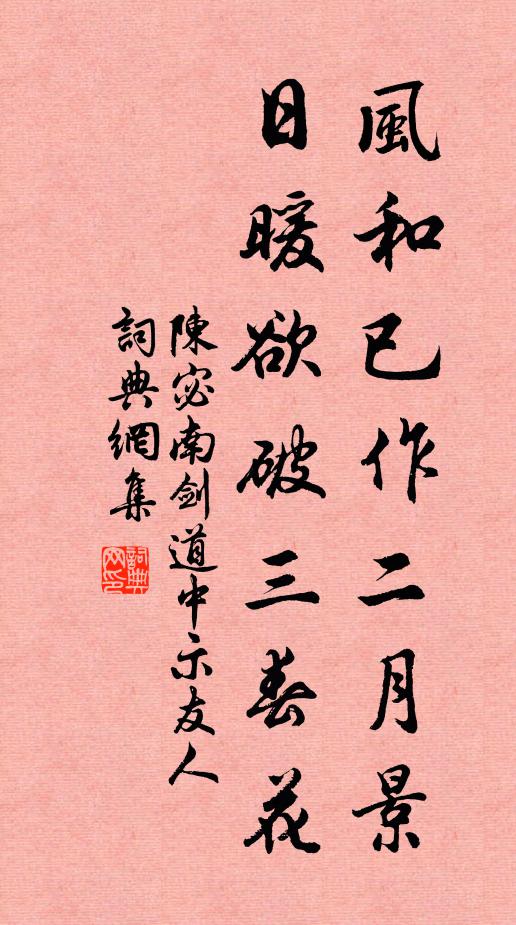 風和已作二月景
日暖欲破三春花
陳宓南劍道中示友人
詞典網集
詞典网印